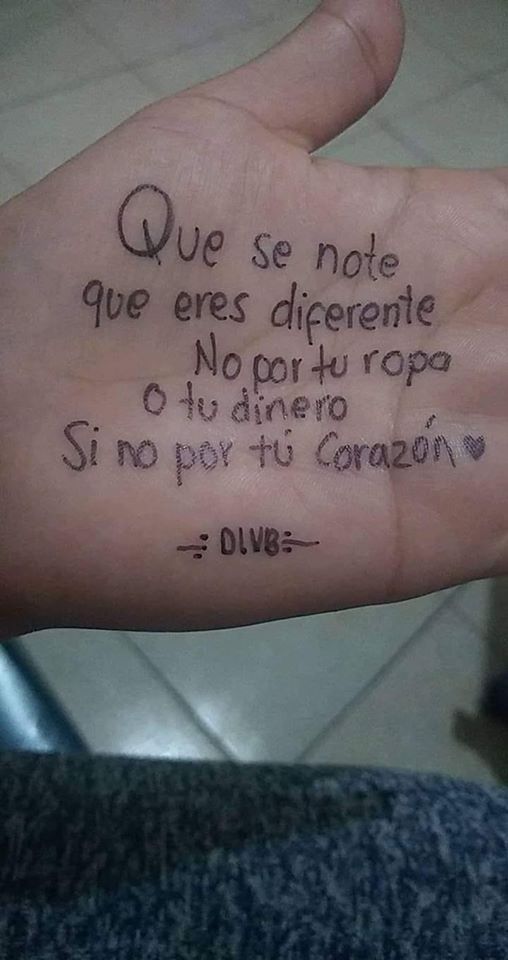 Que se note
que eres diferente
No por tu ropa
O tu dinero
Si no por tú Corazón ♥
DLVB